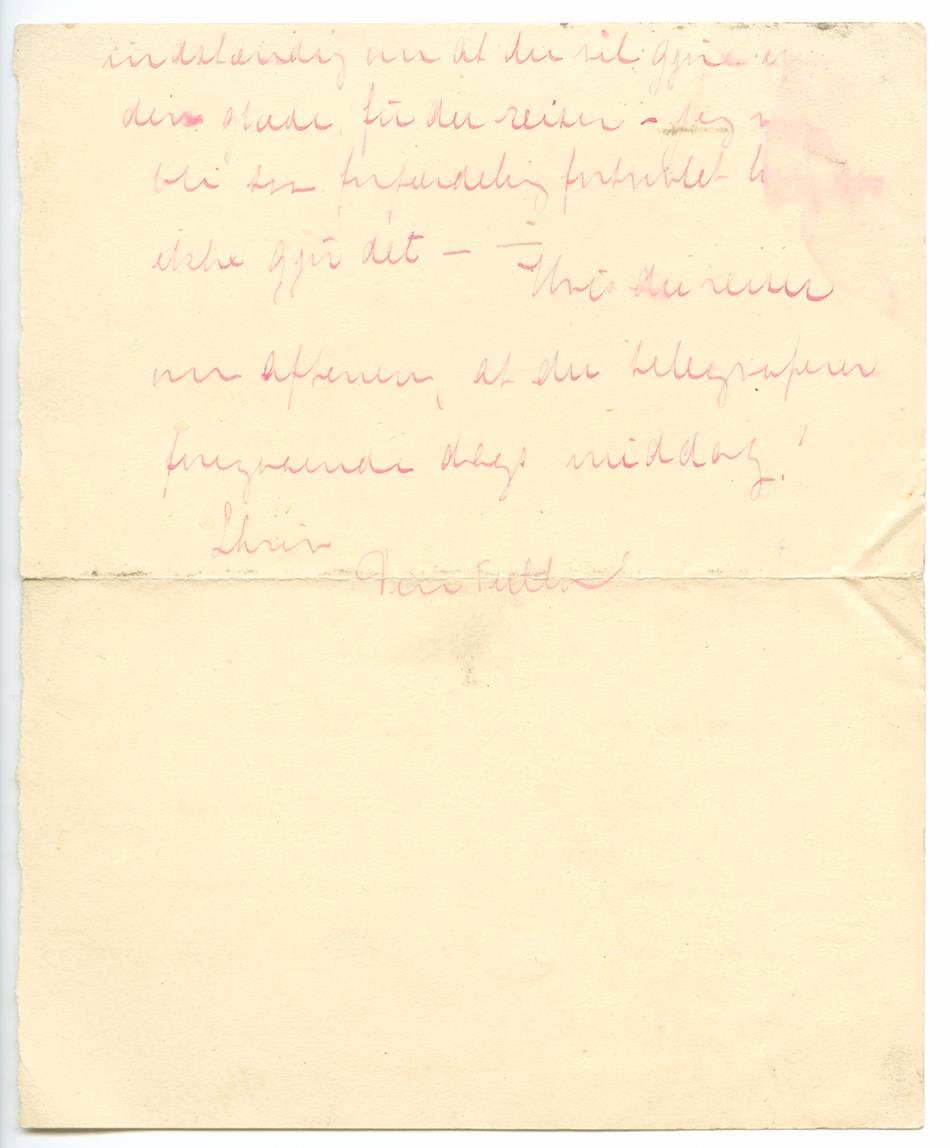 indstændig om at du vil gjøre
den glæde, før du reiser – jeg
bli saa forfærdelig fortvilet
ikke gjør det – –
Hvis du reiser
om aftenen, at du telegraferer
foregaaende dags middag!
Skriv
Din